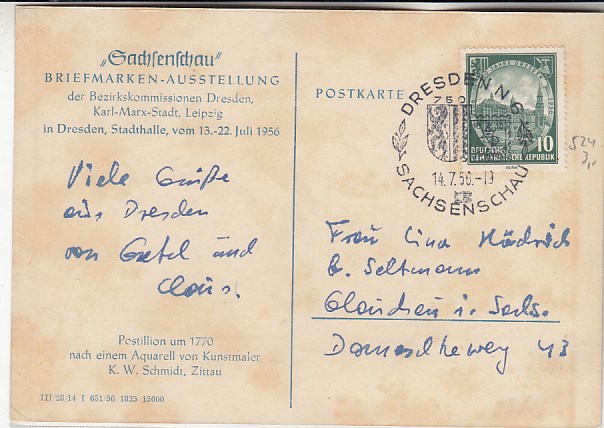 „Sachsenschau"
BRIEFMARKEN-AUSSTELLUNG
der Bezirkskommissionen Dresden,
Karl-Marx-Stadt, Leipzig
in Dresden, Stadthalle, vom 13.-22. Juli 1956
Viele Grüße
aus Dresden
von Gretel und
Claus.
Postillion um 1770
nach einem Aquarell von Kunstmaler
K. W. Schmidt, Zittau
III/28/14 I 651/56 1835 15000
POSTKARTE
DRESDEN N 6
750
14.7.56.-19
SACHSENSCHAU
DEUTSCHE
DEMOKRATISCHE REPUBLIK
10
524
3,-
Frau Lina Hädrich
b. Seltmann
Glauchau i. Sachs.
43